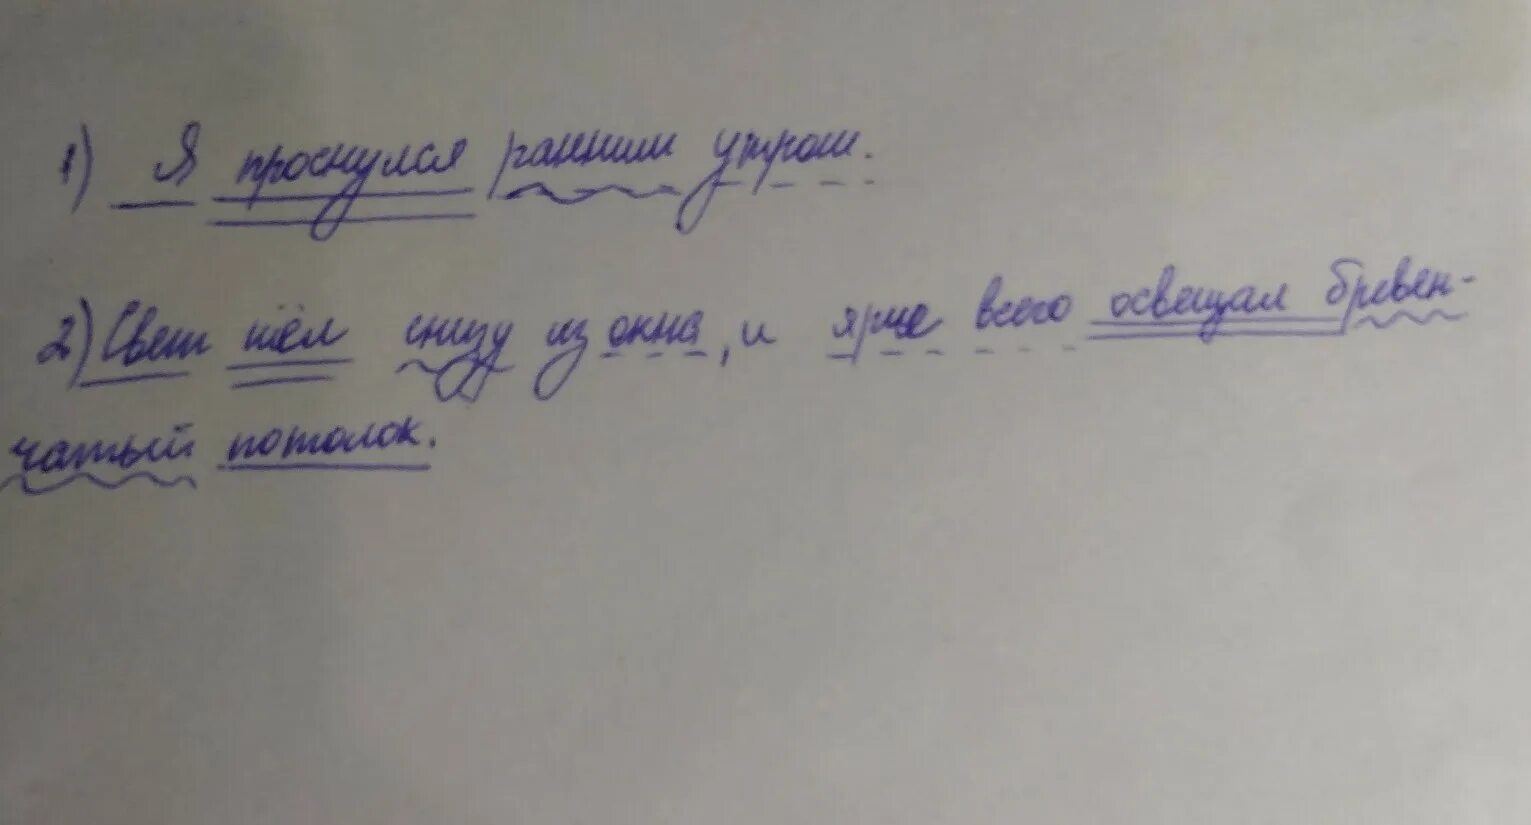 1) Я проснулся ранним утром.
2) Свет шёл снизу из окна, и ярче всего освещал бревен-
чатый потолок.